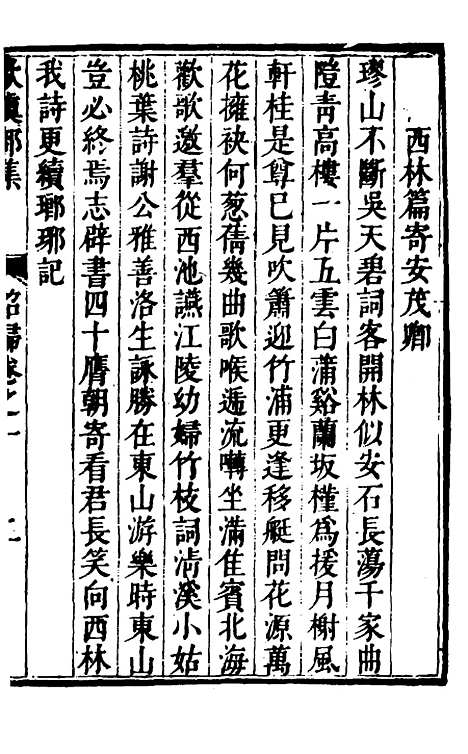 西林篇寄安茂卿
璆山不斷吳天碧詞客開林似安石長蕩千家曲
隥靑高樓一片五雲白蒲谿蘭坂槿爲援月榭風
軒桂是尊巳見吹簫迎竹浦更逢移艇問花源萬
花擁袂何葱蒨幾曲歌喉遞流囀坐滿隹賓北海
歡歌邀羣從西池讌江陵幼婦竹枝詞淸溪小姑
桃葉詩謝公雅善洛生詠勝在東山游樂時東山
豈必終焉志辟書四十膺朝寄看君長笑向西林
我詩更續瑯琊記